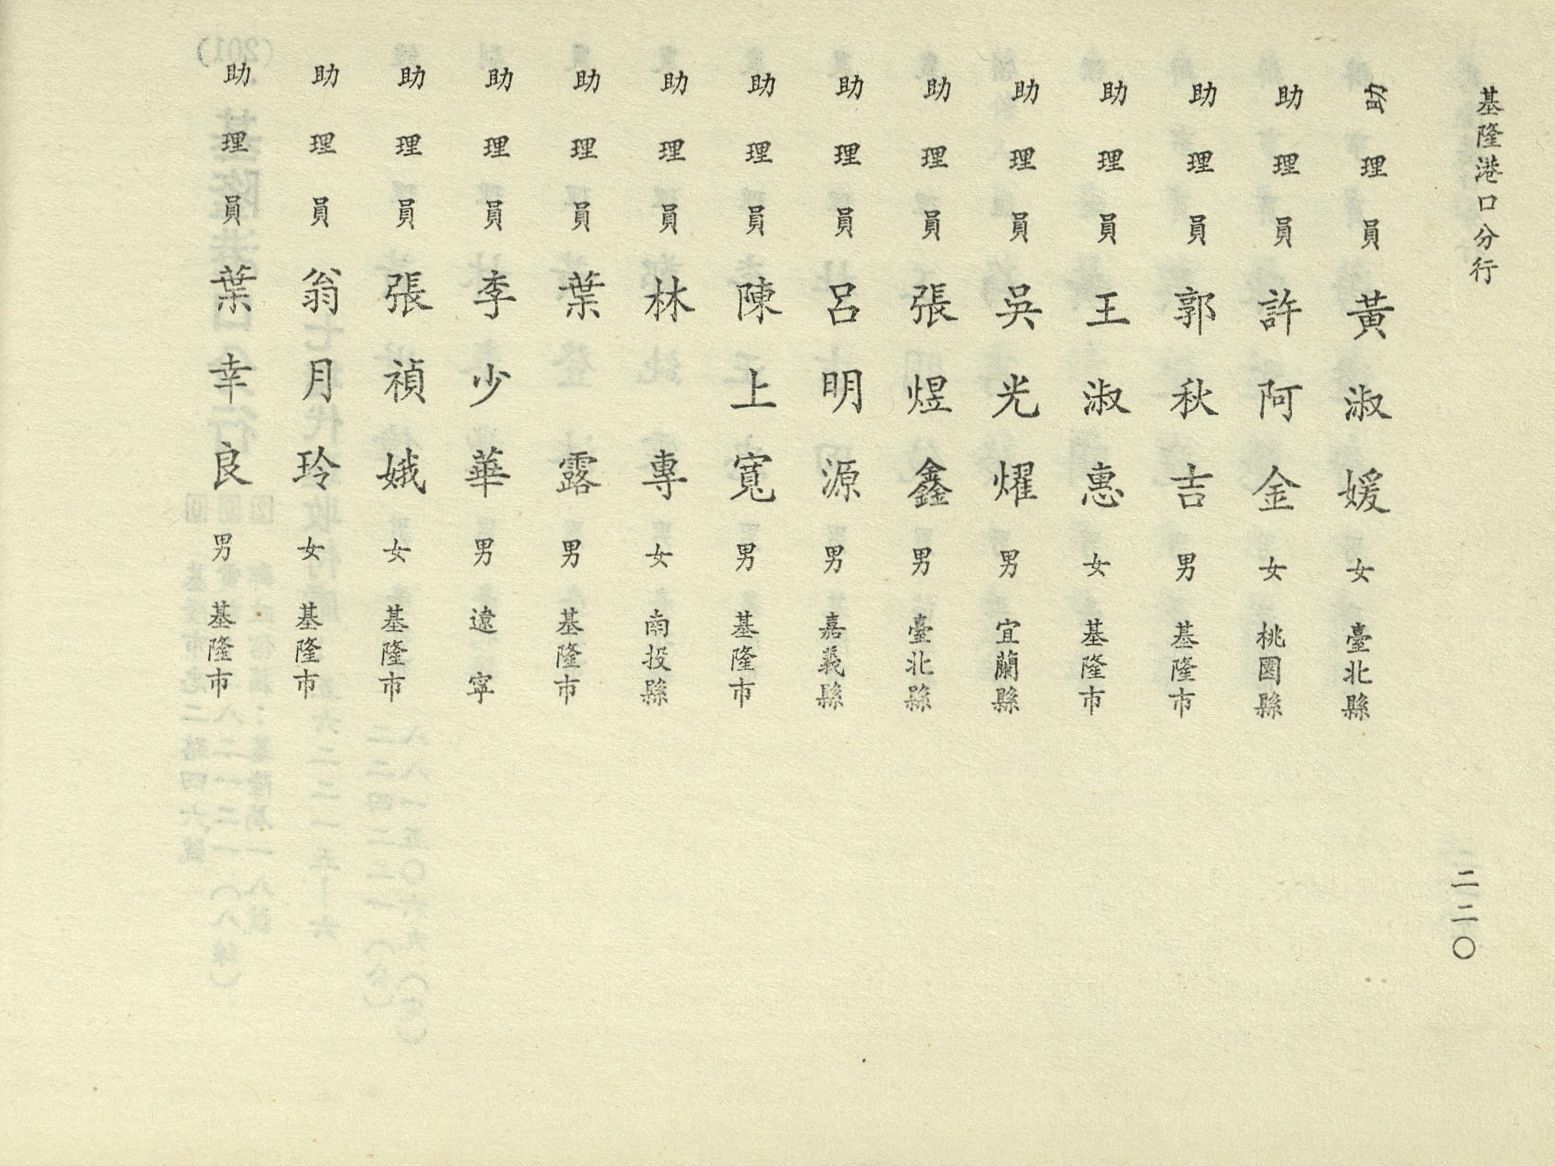 基隆港口分行
助理員 黃淑媛 女 臺北縣
助理員 許阿金 女 桃園縣
助理員 郭秋吉 男 基隆市
助理員 王淑惠 女 基隆市
助理員 吳光燿 男 宜蘭縣
助理員 張煜鑫 男 臺北縣
助理員 呂明源 男 嘉義縣
助理員 陳上寬 男 基隆市
助理員 林專 女 南投縣
助理員 葉露 男 基隆市
助理員 李少華 男 遼寧
助理員 張禎娥 女 基隆市
助理員 翁月玲 女 基隆市
助理員 葉幸良 男 基隆市
二二〇